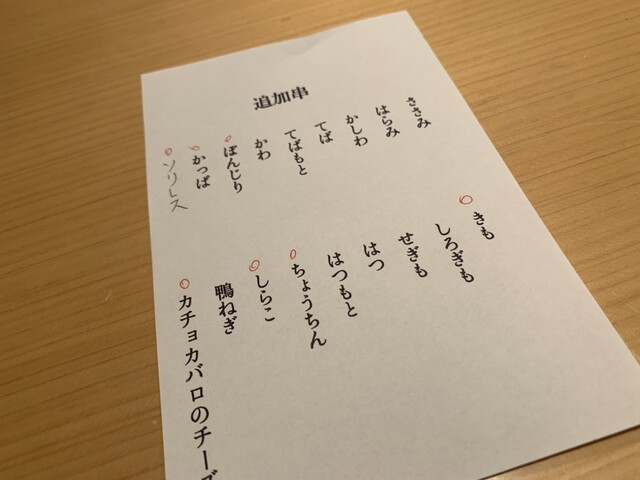 追加串
ささみ
はらみ
かしわ
てば
てばもと
かわ
ぼんじり
かっぱ
ソリレス
きも
しろぎも
せぎも
はつ
はつもと
ちょうちん
しらこ
鴨ねぎ
カチョカバロのチーズ